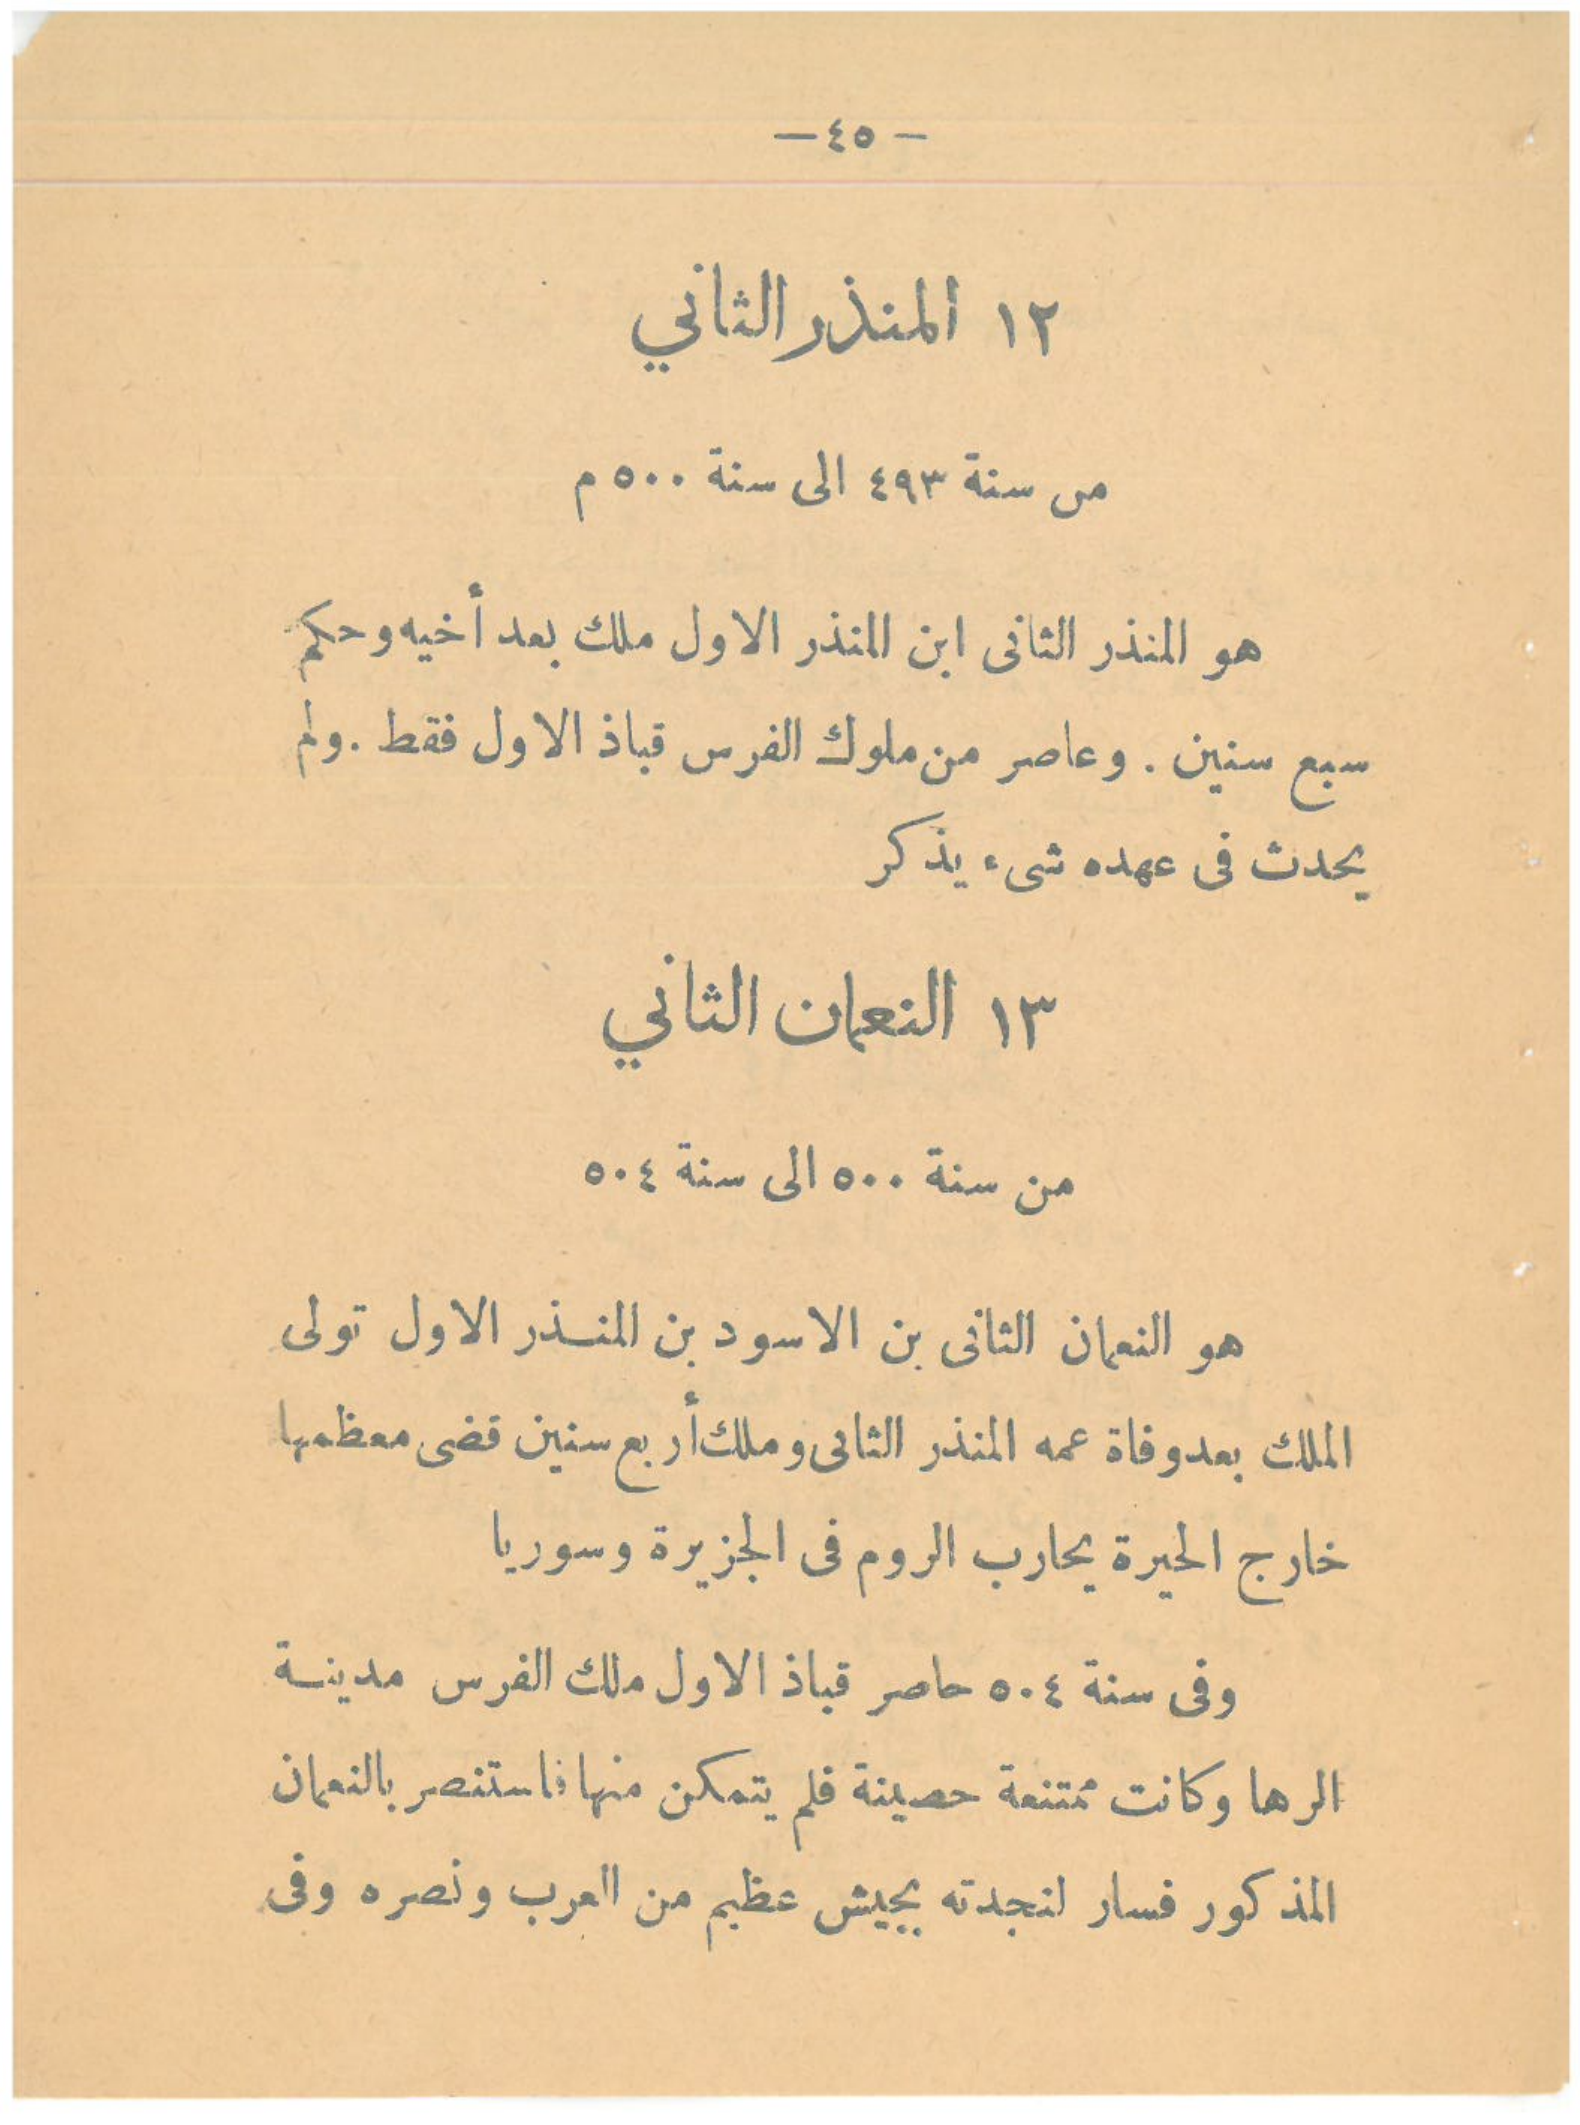 — ٤٥ —
١٢ المنذر الثاني
من سنة ٤٩٣ الى سنة ٥٠٠ م
هو المنذر الثانى ابن المنذر الاول ملك بعد أخيه وحكم
سبع سنين . وعاصر من ملوك الفرس قباذ الاول فقط . ولم
يحدث فى عهده شىء يذكر
١٣ النعمان الثاني
من سنة ٥٠٠ الى سنة ٥٠٤
هو النعمان الثانى بن الاسود بن المنـذر الاول تولى
الملك بعد وفاة عمه المنذر الثانى وملك أربع سنين قضى معظمها
خارج الحيرة يحارب الروم فى الجزيرة وسوريا
وفى سنة ٥٠٤ حاصر قباذ الاول ملك الفرس مدينـة
الرها وكانت ممتنعة حصينة فلم يتمكن منها فاستنصر بالنعمان
المذكور فسار لنجدته بجيش عظيم من العرب ونصره وفى